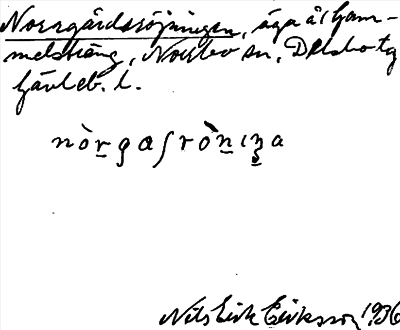 Norrgårdsröjningen, äga å Gam-
melsträng, Norrbo sn, Delsbo tg
Gävleb. l.
nòrgaʃròniŋa
Nils Erik Eriksson 1936